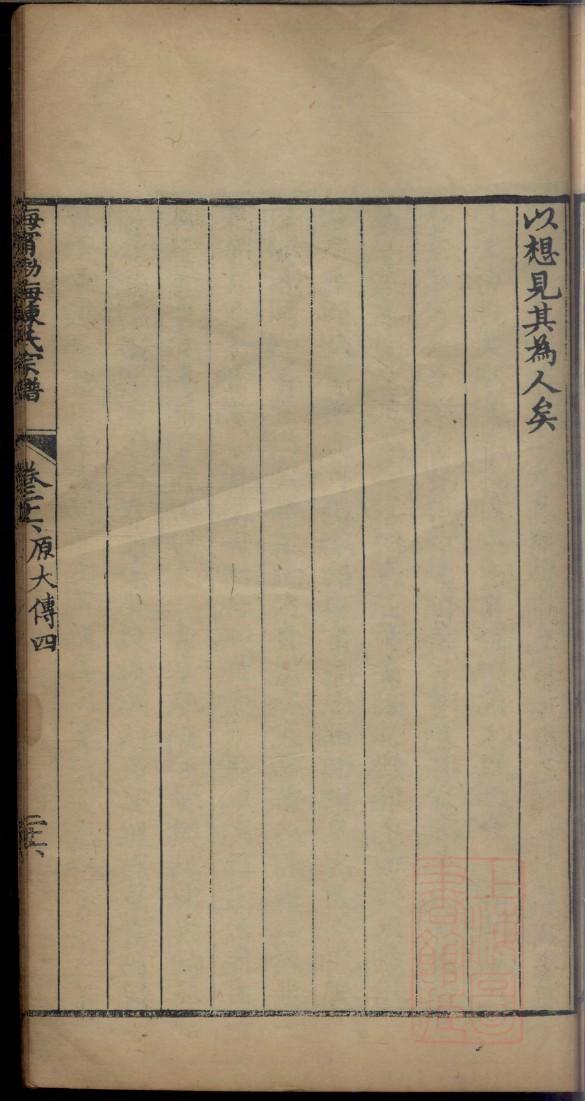 以想見其為人矣
海寧渤海陳氏宗譜
原大傳四
上海圖書館藏